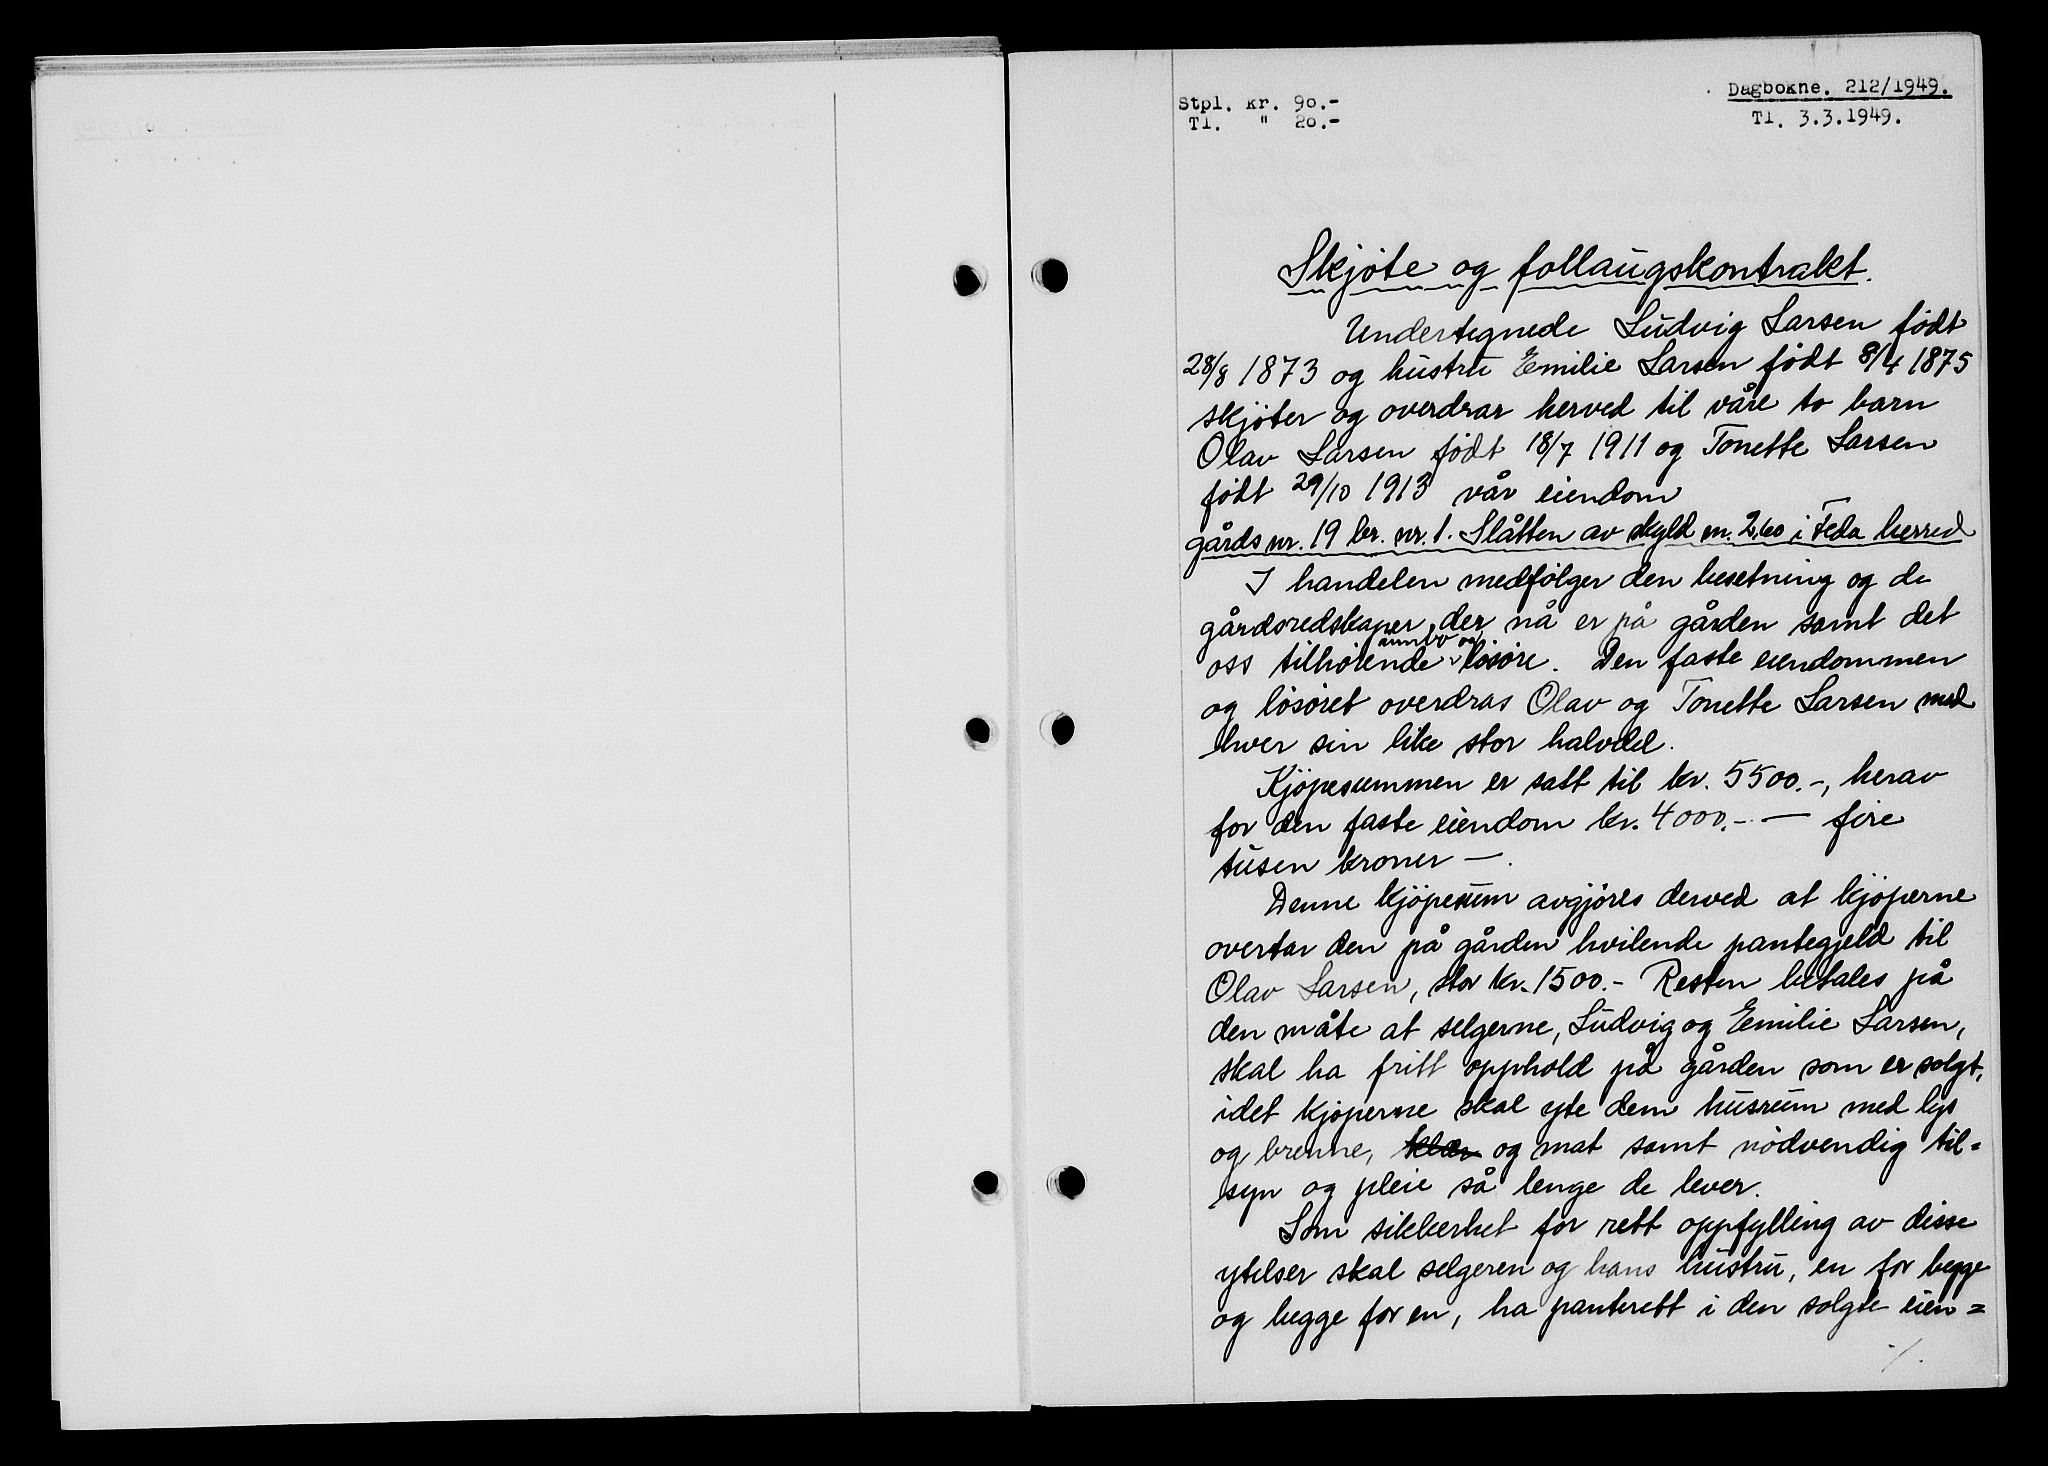 Stpl. kr. 90.-
Tl. " 20.-
Dagbokne. 212/1949.
Tl. 3.3.1949.
Skjøte og follaugskontrakt.
Undertegnede Ludvig Larsen født
28/8 1873 og hustru Emilie Larsen født 8/4 1875
skjøter og overdrar herved til våre to barn
Olav Larsen født 18/7 1911 og Tonette Larsen
født 29/10 1913 vår eiendom
gårds nr. 19 br. nr. 1. Slåtten av skyld m. 2,60 i Feda herred
I handelen medfølger den besetning og de
gårdsredskaper der nå er på gården samt det
oss tilhørende innbo og løsøre. Den faste eiendommen
og løsøret overdras Olav og Tonette Larsen med
hver sin like stor halvdel.
Kjøpesummen er satt til kr. 5500.-, herav
for den faste eiendom kr. 4000.- — fire
tusen kroner —.
Denne kjøpesum avgjøres derved at kjøperne
overtar den på gården hvilende pantegjeld til
Olav Larsen, stor kr. 1500.- Resten betales på
den måte at selgerne, Ludvig og Emilie Larsen,
skal ha fritt opphold på gården som er solgt,
idet kjøperne skal yte dem husrum med lys
og brenne, klær og mat samt nødvendig til=
syn og pleie så lenge de lever.
Som sikkerhet for rett oppfylling av disse
ytelser skal selgeren og hans hustru, en for begge
og begge for en, ha panterett i den solgte eien=
./.